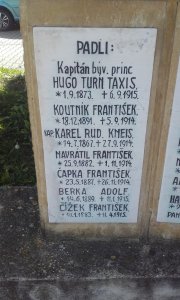 PADLI:
Kapitán býv. princ
HUGO TURN TAXIS,
* 1.9.1873. + 6.9.1915.
KOUTNÍK FRANTIŠEK,
* 18.12.1891. + 5.9.1914.
KAP. KAREL RUD. KMEIS,
* 14.7.1867. + 27.9.1914.
NAVRÁTIL FRANTIŠEK,
* 25.9.1882. + 1.11.1914.
ČAPKA FRANTIŠEK,
* 23.5.1887. + 26.11.1914
BERKA ADOLF,
* 14.6.1889. + 11.1.1915.
ČÍŽEK FRANTIŠEK,
1.1883. + 11.4.1915.